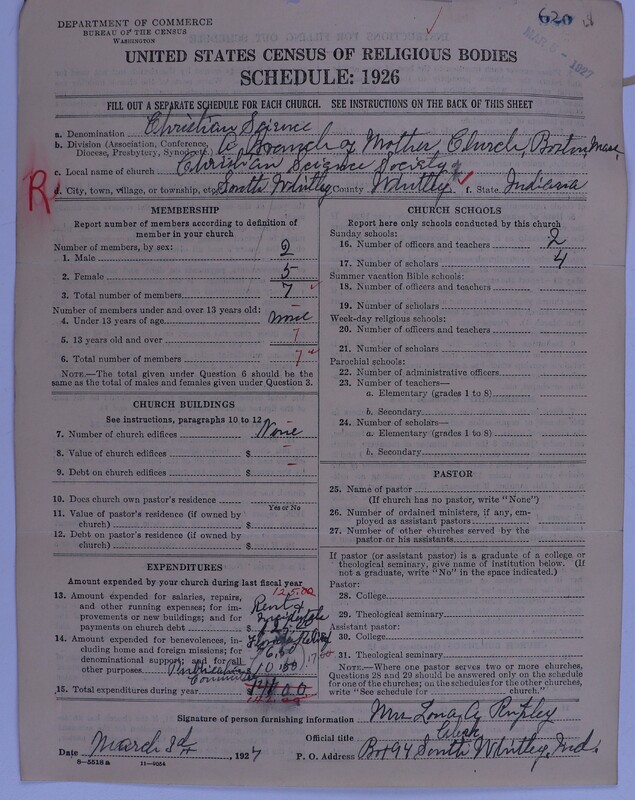 DEPARTMENT OF COMMERCE
BUREAU OF THE CENSUS
WASHINGTON
620 A
MAR 5 - 1927
UNITED STATES CENSUS OF RELIGIOUS BODIES
SCHEDULE: 1926
FILL OUT A SEPARATE SCHEDULE FOR EACH CHURCH. SEE INSTRUCTIONS ON THE BACK OF THIS SHEET
a. Denomination Christian Science
b. Division (Association, Conference, Diocese, Presbytery, Synod, etc.) Branch of Mother Church, Boston, Mass.
c. Local name of church Christian Science Society
R
d. City, town, village, or township, etc. South Whitley County Whitley f. State Indiana
MEMBERSHIP
Report number of members according to definition of member in your church
Number of members, by sex:
1. Male 2
2. Female 5
3. Total number of members 7
Number of members under and over 13 years old:
4. Under 13 years of age None
5. 13 years old and over 7
6. Total number of members 7
NOTE.—The total given under Question 6 should be the same as the total of males and females given under Question 3.
CHURCH BUILDINGS
See instructions, paragraphs 10 to 12
7. Number of church edifices None
8. Value of church edifices $ –
9. Debt on church edifices $ –
10. Does church own pastor's residence
Yes or No
11. Value of pastor's residence (if owned by church) $
12. Debt on pastor's residence (if owned by church) $
EXPENDITURES
Amount expended by your church during last fiscal year
125.00
13. Amount expended for salaries, repairs, and other running expenses; for improvements or new buildings; and for payments on church debt $ Rent &
125.00
14. Amount expended for benevolences, including home and foreign missions; for denominational support; and for all other purposes Florida Relief
Publication Committee
17.00
15. Total expenditures during year
CHURCH SCHOOLS
Report here only schools conducted by this church
Sunday schools:
16. Number of officers and teachers 2
17. Number of scholars 4
Summer vacation Bible schools:
18. Number of officers and teachers
19. Number of scholars
Week-day religious schools:
20. Number of officers and teachers
21. Number of scholars
Parochial schools:
22. Number of administrative officers
23. Number of teachers—
a. Elementary (grades 1 to 8)
b. Secondary
24. Number of scholars—
a. Elementary (grades 1 to 8)
b. Secondary
PASTOR
25. Name of pastor
(If church has no pastor, write "None")
26. Number of ordained ministers, if any, employed as assistant pastors
27. Number of other churches served by the pastor or his assistants
If pastor (or assistant pastor) is a graduate of a college or theological seminary, give name of institution below. (If not a graduate, write "No" in the space indicated.)
Pastor:
28. College
29. Theological seminary
Assistant pastor:
30. College
31. Theological seminary
NOTE.—Where one pastor serves two or more churches, Questions 28 and 29 should be answered only on the schedule for one of the churches; on the schedules for the other churches, write "See schedule for church."
Signature of person furnishing information Mrs Lona A Rupley
Official title Clerk
Date March 3d, 1927
P. O. Address Box 94 South Whitley, Ind.
8-5518 a 11-9054